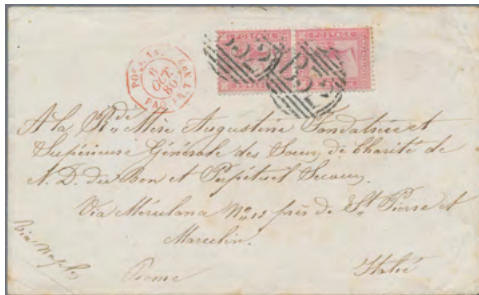 POSTAGE POSTAGE
B53 B53
8
OCT
80
A la Rde Mère Augustine Fondatrice et
Supérieure Générale des Soeurs de Charité de
N. D. du Bon et Perpétuel Secours,
Via Merulana No 12 près de St Pierre et
Marcelin.
Via Naples
Rome Italie